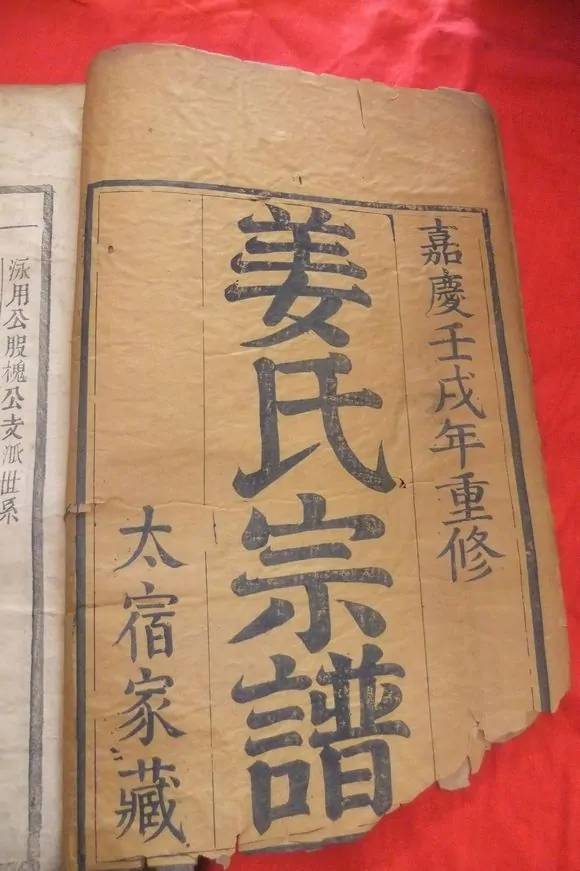 嘉慶壬戌年重修
姜氏宗譜
太宿家藏
泳用公股槐公支派世系